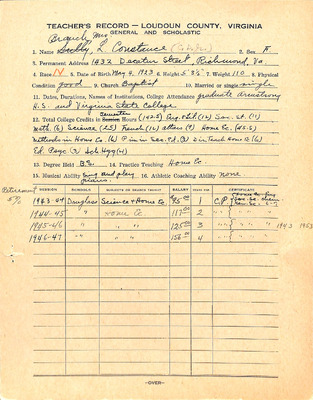 TEACHER'S RECORD—LOUDOUN COUNTY, VIRGINIA
GENERAL AND SCHOLASTIC
Branch, Mrs
1. Name Selby, L Constance 2. Sex F.
3. Permanent Address 1532 Decatur Street, Richmond, Va.
4. Race N 5. Date of Birth May 4, 1923 6. Height 5' 3½" 7. Weight 110 8. Physical
Condition good 9. Church Baptist 10. Married or single single
11. Dates, Durations, Names of Institutions, College Attendance graduate Armstrong
H.S. and Virginia State College.
12. Total College Credits in Semester Hours (142.5) Eng. (12) Soc. St. (9)
Math. (6) Science (23) French (12) Home Ec. (45.5)
Methods in Home Ec (6) in Home Ec (6)
Ed. Psyc (3)
13. Degree Held B.S. 14. Practice Teaching Home Ec
15. Musical Ability sing and play piano. 16. Athletic Coaching Ability none
Retirement 5%
SESSION SCHOOLS SUBJECTS OR GRADES TAUGHT SALARY CERTIFICATE
1943-44 Douglass Science & Home Ec. 95.00 1 C.P.
1944-45 " Home Ec. 117.00 2 "
1945-46 " " " 125.00 3 " 1943 1953
1946-47 " " " 150.00 4 "
—OVER—